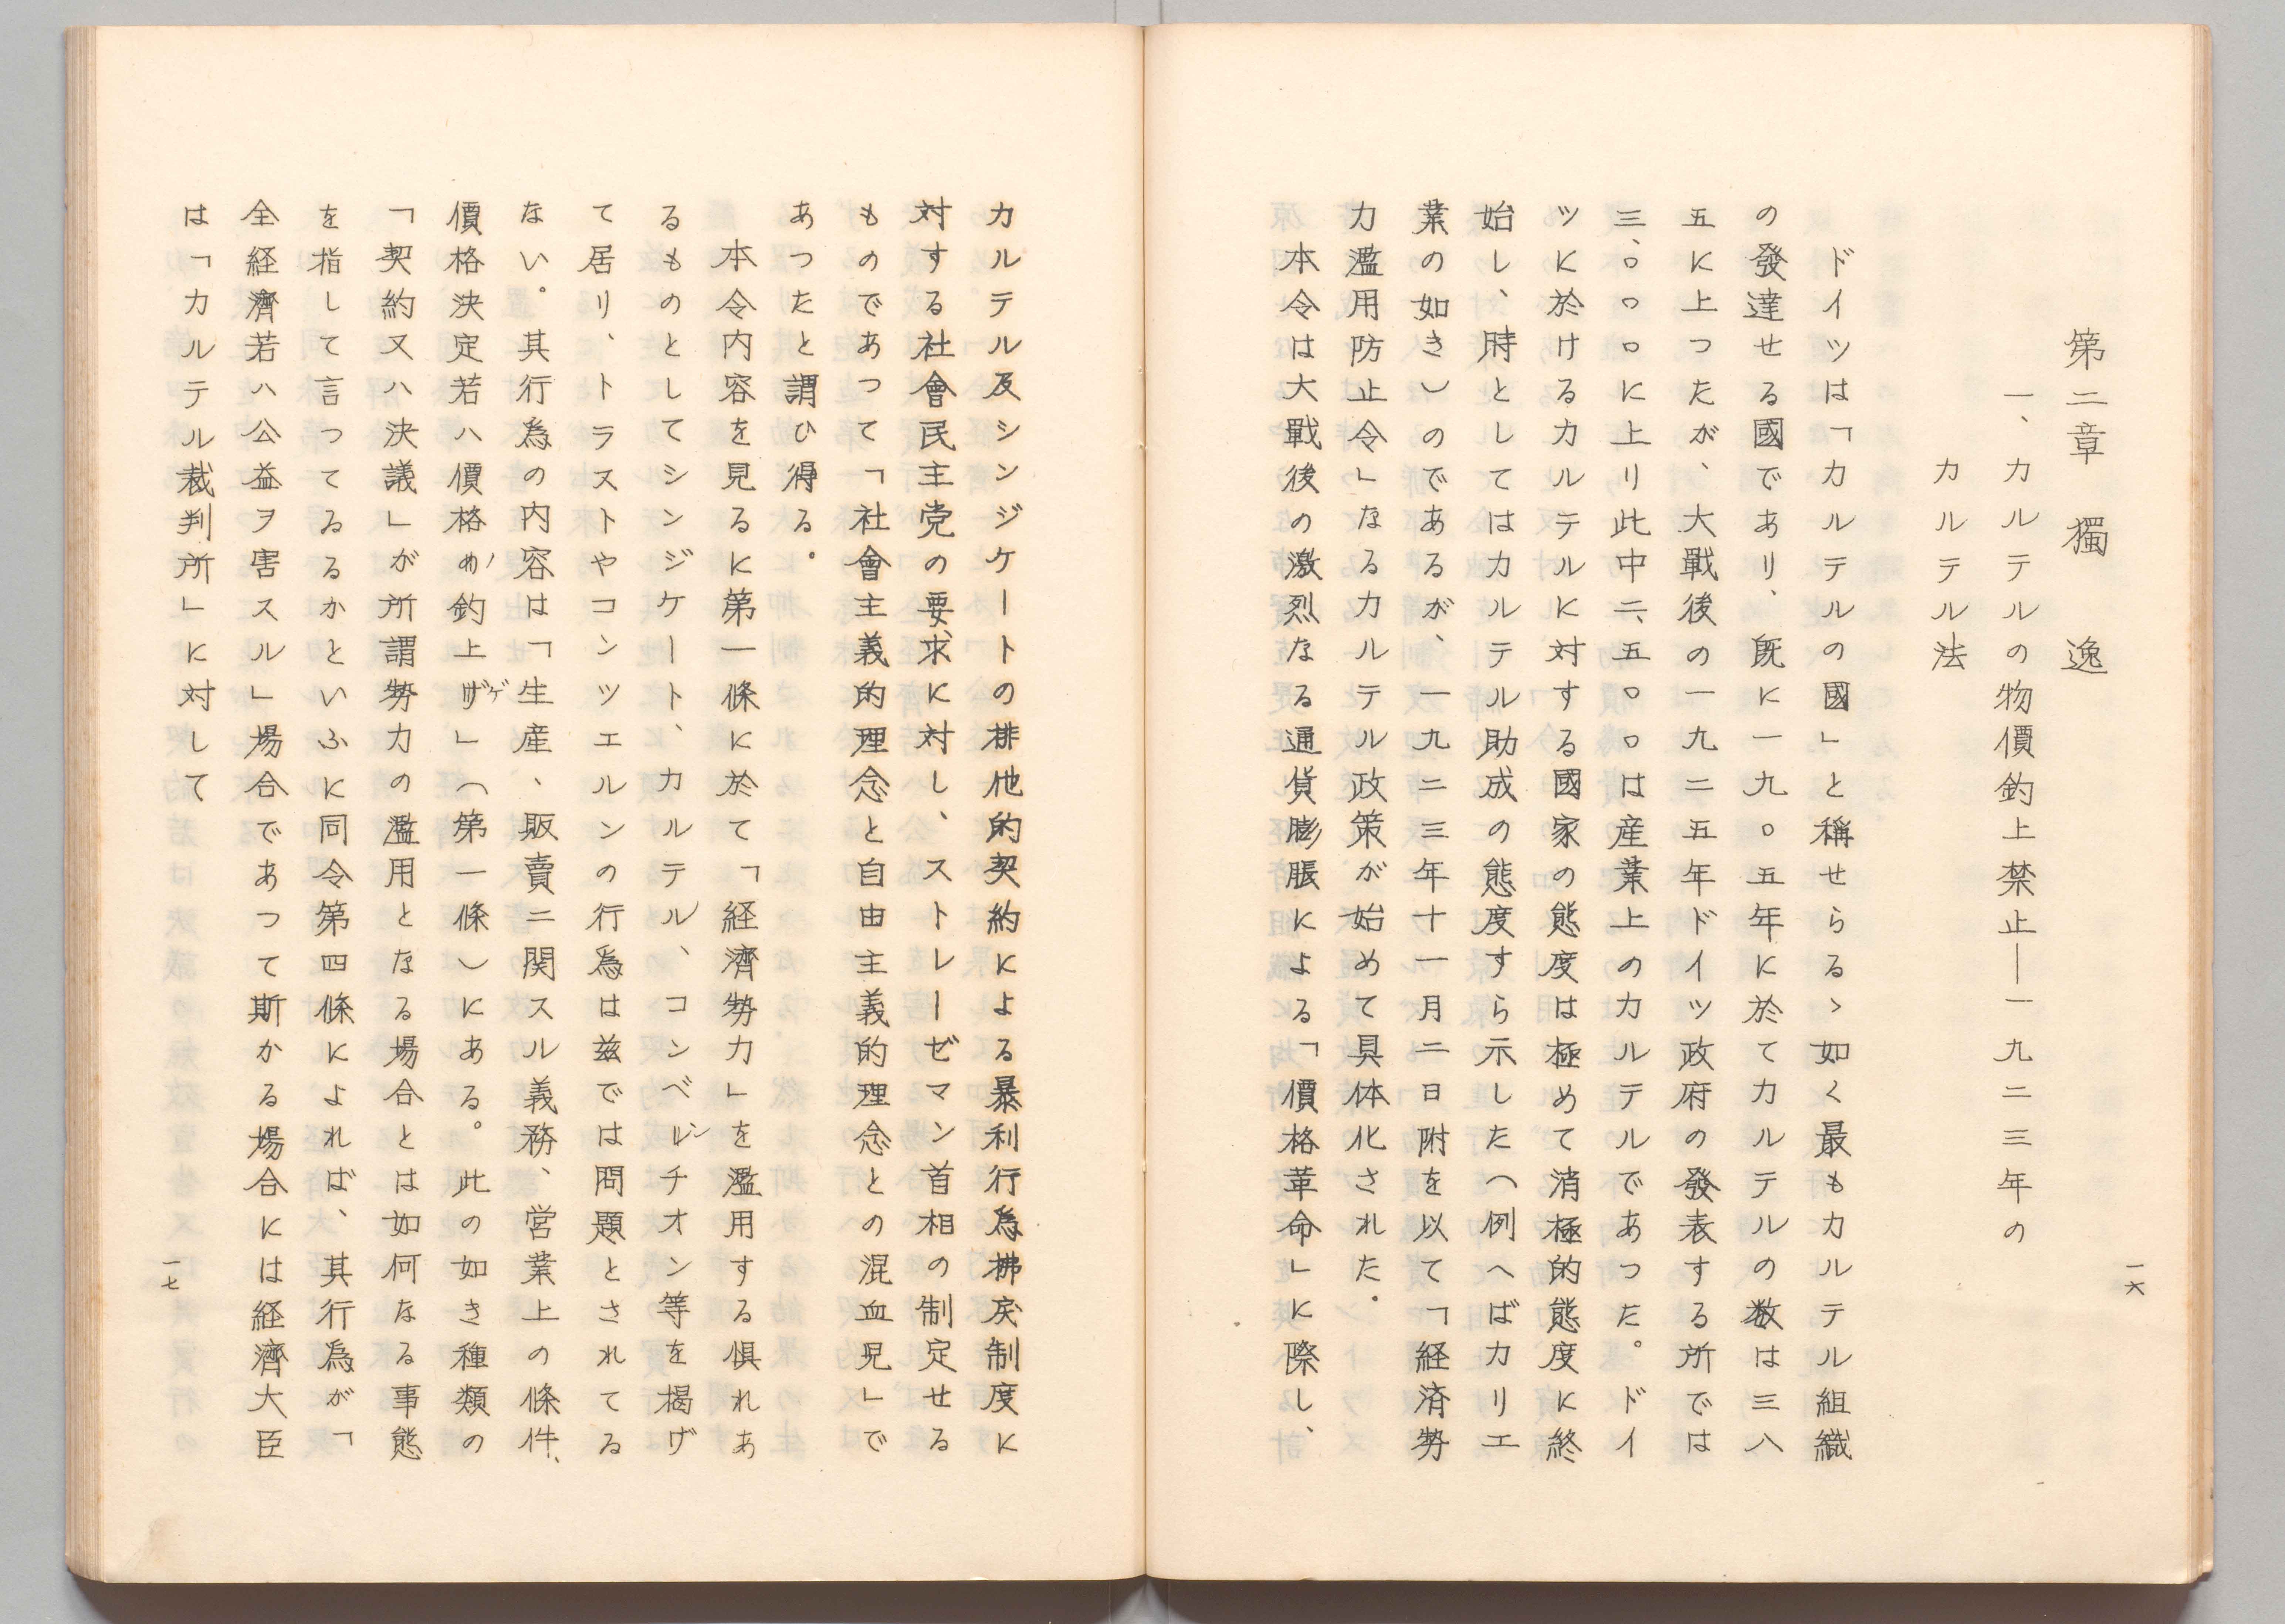 第二章　獨　逸
一、カルテルの物價釣上禁止―一九二三年の
カルテル法
ドイツは「カルテルの國」と稱せらるゝ如く最もカルテル組織
の發達せる國であり、既に一九〇五年に於てカルテルの数は三八
五に上つたが、大戰後の一九二五年ドイツ政府の發表する所では
三、〇〇〇に上り此中二、五〇〇は産業上のカルテルであつた。ドイ
ツに於けるカルテルに対する國家の態度は極めて消極的態度に終
始し、時としてはカルテル助成の態度すら示した（例へばカリエ
業の如き）のであるが、一九二三年十一月二日附を以て「経済勢
力濫用防止令」なるカルテル政策が始めて具体化された。
本令は大戰後の激烈なる通貨膨脹による「價格革命」に際し、
一六
カルテル及シンジケートの排他的契約による暴利行為拂戻制度に
対する社會民主党の要求に対し、ストレーゼマン首相の制定せる
ものであつて「社會主義的理念と自由主義的理念との混血児」で
あつたと謂ひ得る。
本令内容を見るに第一條に於て「経濟勢力」を濫用する惧れあ
るものとしてシンジケート、カルテル、コンベンチオン等を揭げ
て居リ、トラストやコンツエルンの行為は茲では問題とされてゐ
ない。其行為の内容は「生産、販賣ニ関スル義務、営業上の條件、
價格決定若ハ價格ノ釣上ゲ」（第一條）にある。此の如き種類の
「契約又ハ決議」が所謂勢力の濫用となる場合とは如何なる事態
を指して言つてゐるかといふに同令第四條によれば、其行為が「
全経濟若ハ公益ヲ害スル」場合であつて斯かる場合には経濟大臣
は「カルテル裁判所」に対して
一七